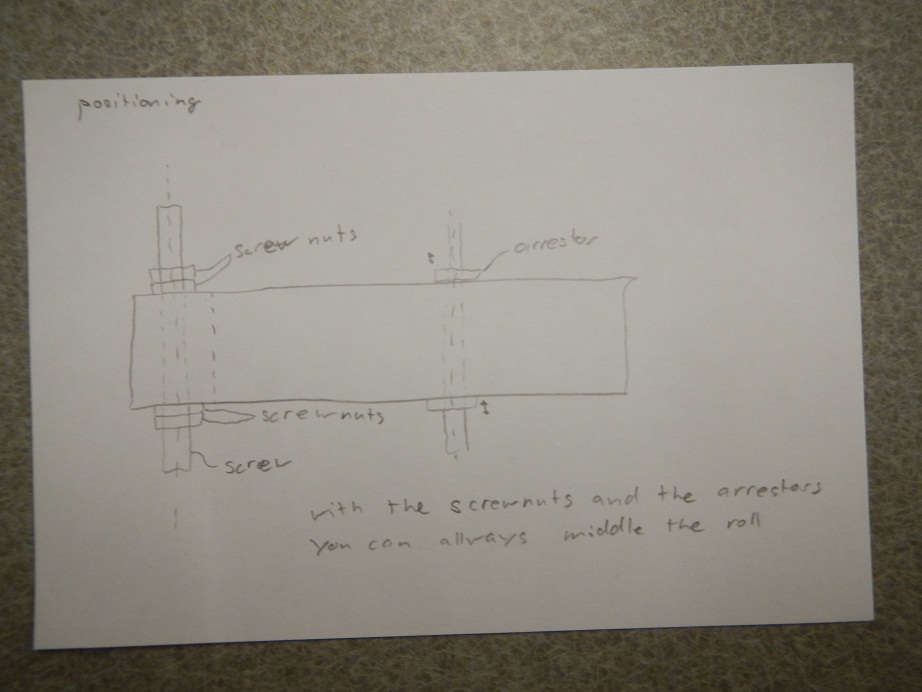 positioning
screw nuts
arrestor
screwnuts
screw
with the screwnuts and the arrestors
you can allways middle the roll